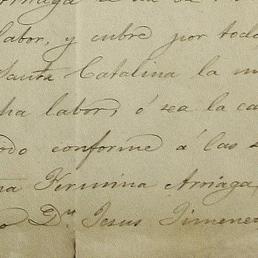 labor, y cubre por todo
Santa Catalina la m
ha labor, ó sea la ca
odo conforme á las s
na Fermina Arriaga
o Dn. Jesus Jimenez